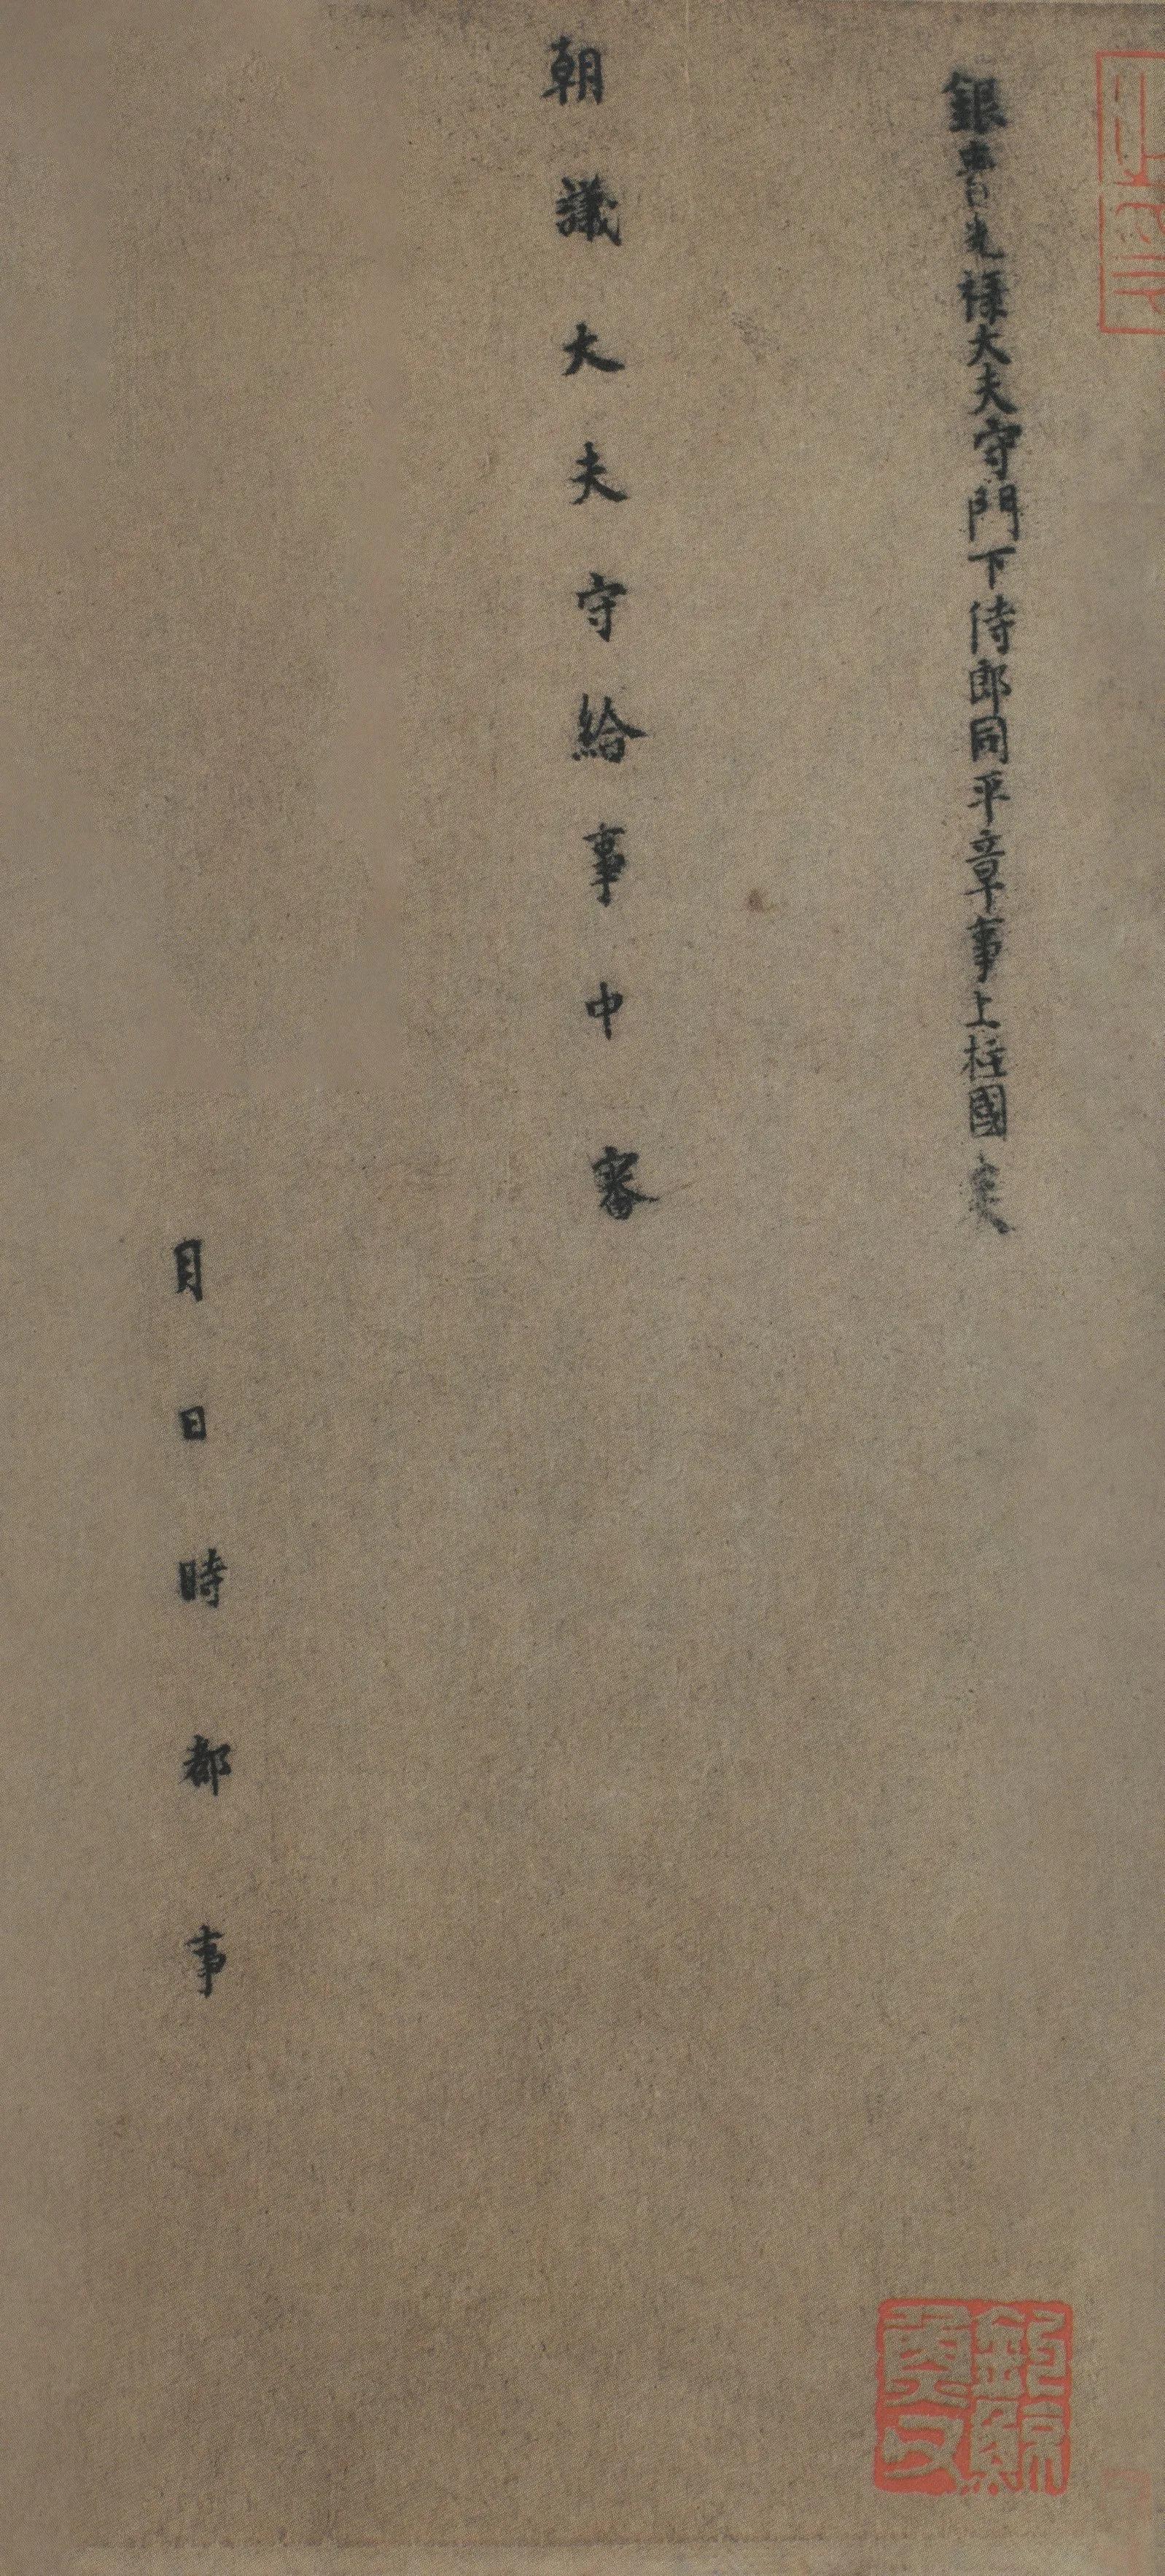 銀青光祿大夫守門下侍郎同平章事上柱國
朝議大夫守給事中審
月日時都事